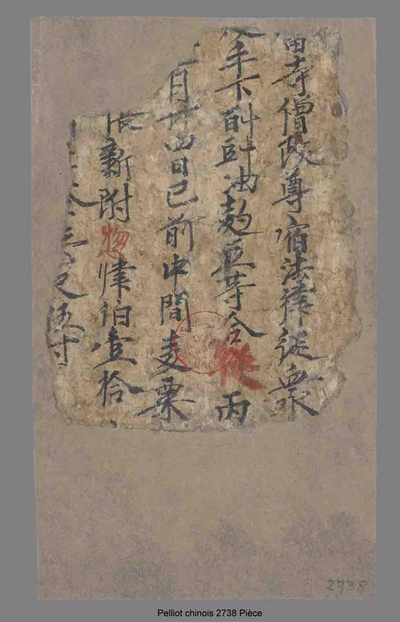 寺僧政尊宿法律徒衆
手下斛㪷油麪豆等合從丙
月廿四日已前中間麦粟
新附惣緤泊壹拾
尺伍寸
2738
Pelliot chinois 2738 Pièce